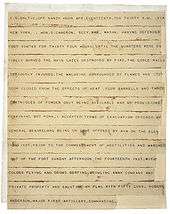 S.S.BALTIC.OFF SANDY HOOK APR.EIGHTEENTH.TEN THIRTY A.M. .VIA
NEW YORK. . HON.S.CAMERON. SECY. WAR. WASHN. HAVING DEFENDED
FORT SUMTER FOR THIRTY FOUR HOURS.UNTIL THE QUARTERS WERE EN
TIRELY BURNED THE MAIN GATES DESTROYED BY FIRE.THE GORGE WALLS
SERIOUSLY INJURED.THE MAGAZINE SURROUNDED BY FLAMES AND ITS
DOOR CLOSED FROM THE EFFECTS OF HEAT.FOUR BARRELLS AND THREE
CARTRIDGES OF POWDER ONLY BEING AVAILABLE AND NO PROVISIONS
REMAINING BUT PORK. I ACCEPTED TERMS OF EVACUATION OFFERED BY
GENERAL BEAUREGARD BEING SAME OFFERED BY HIM ON THE ELEV
ENTH INST.PRIOR TO THE COMMENCEMENT OF HOSTILITIES AND MARCHED
OUT OF THE FORT SUNDAY AFTERNOON THE FOURTEENTH INST.WITH
COLORS FLYING AND DRUMS BEATING.BRINGING AWAY COMPANY AND
PRIVATE PROPERTY AND SALUTING MY FLAG WITH FIFTY GUNS. ROBERT
ANDERSON.MAJOR FIRST ARTILLERY.COMMANDING.